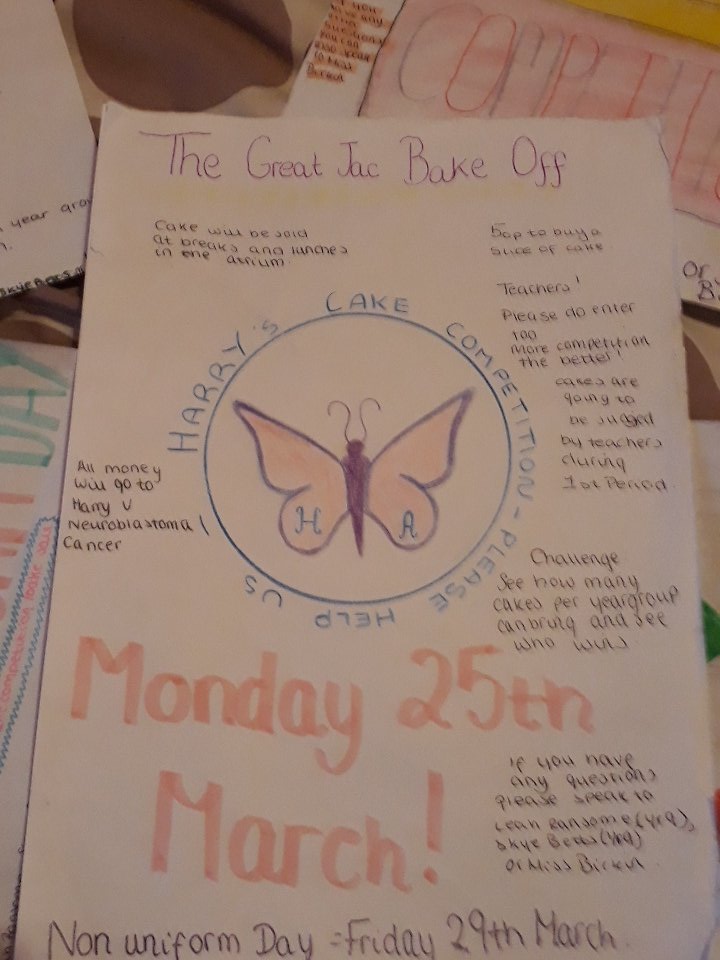 The Great Jac Bake Off
Cake will be sold
at breaks and lunches
in the atrium.
50p to buy a
slice of cake.
Teachers!
Please do enter
too
More competition
the better!
cakes are
going to
be judged
by teachers
during
1st Period.
HARRY'S CAKE COMPETITION - PLEASE HELP US
H A
All money
will go to
Harry V
Neuroblastoma
Cancer
Challenge
See how many
cakes per yeargroup
can bring and see
who wins.
Monday 25th
March!
If you have
any questions
please speak to
Leah Ransome (yr9),
Skye Betts (yr9)
or Miss Birkett.
Non uniform Day = Friday 29th March.
you
any
you can
also speak
to Miss
COMPETIT
Or
B
year grou
DAY
competition bake sale